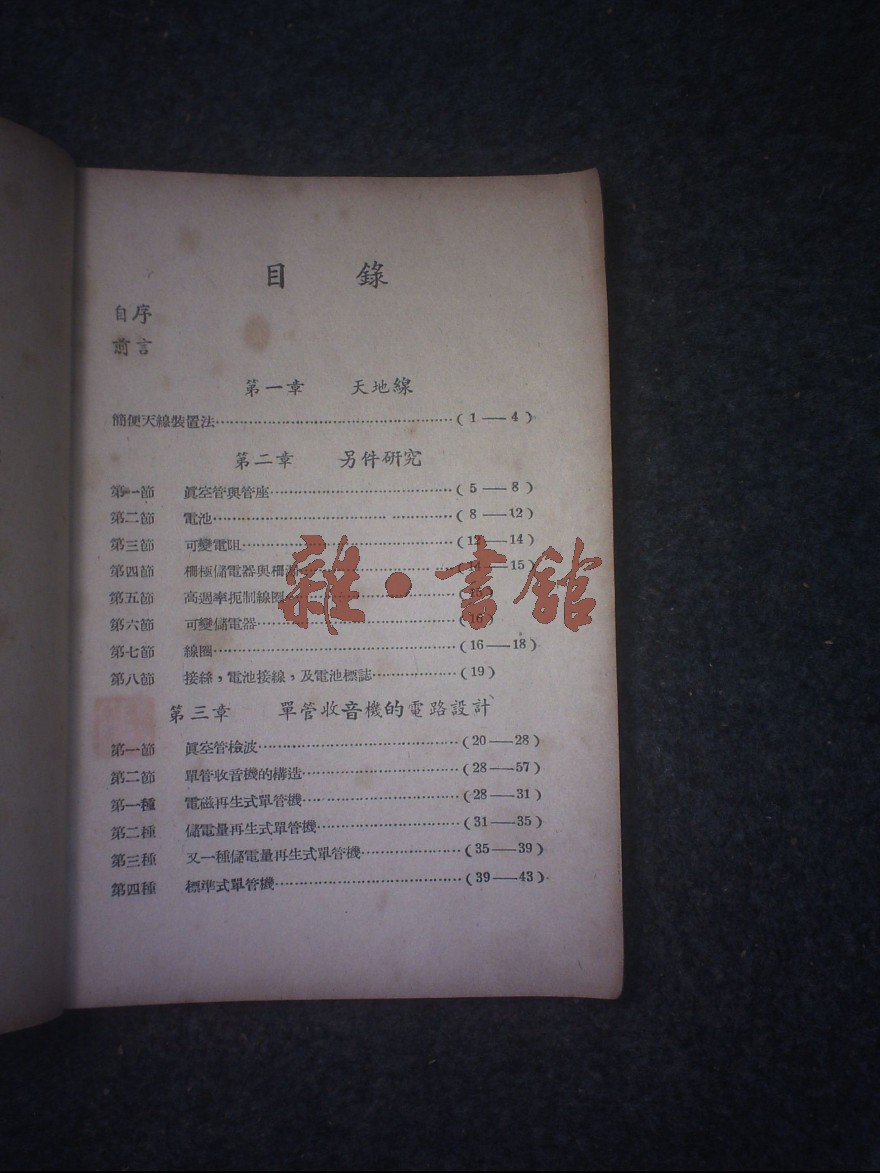 目 錄
自序
前言
第一章 天地線
簡便天線裝置法……………………………………(1——4)
第二章 另件研究
第一節 眞空管與管座……………………………(5——8)
第二節 電池……………………………………(8——12)
第三節 可變電阻………………………………(12——14)
第四節 柵極儲電器與柵漏……………………(14——15)
第五節 高週率扼制線圈…………………………(15)
第六節 可變儲電器………………………………(16)
第七節 線圈……………………………………(16——18)
第八節 接綫，電池接線，及電池標誌……………(19)
第三章 單管收音機的電路設計
第一節 眞空管檢波………………………………(20——28)
第二節 單管收音機的構造………………………(28——57)
第一種 電磁再生式單管機………………………(28——31)
第二種 儲電量再生式單管機……………………(31——35)
第三種 又一種儲電量再生式單管機……………(35——39)
第四種 標準式單管機……………………………(39——43)
雜·書館